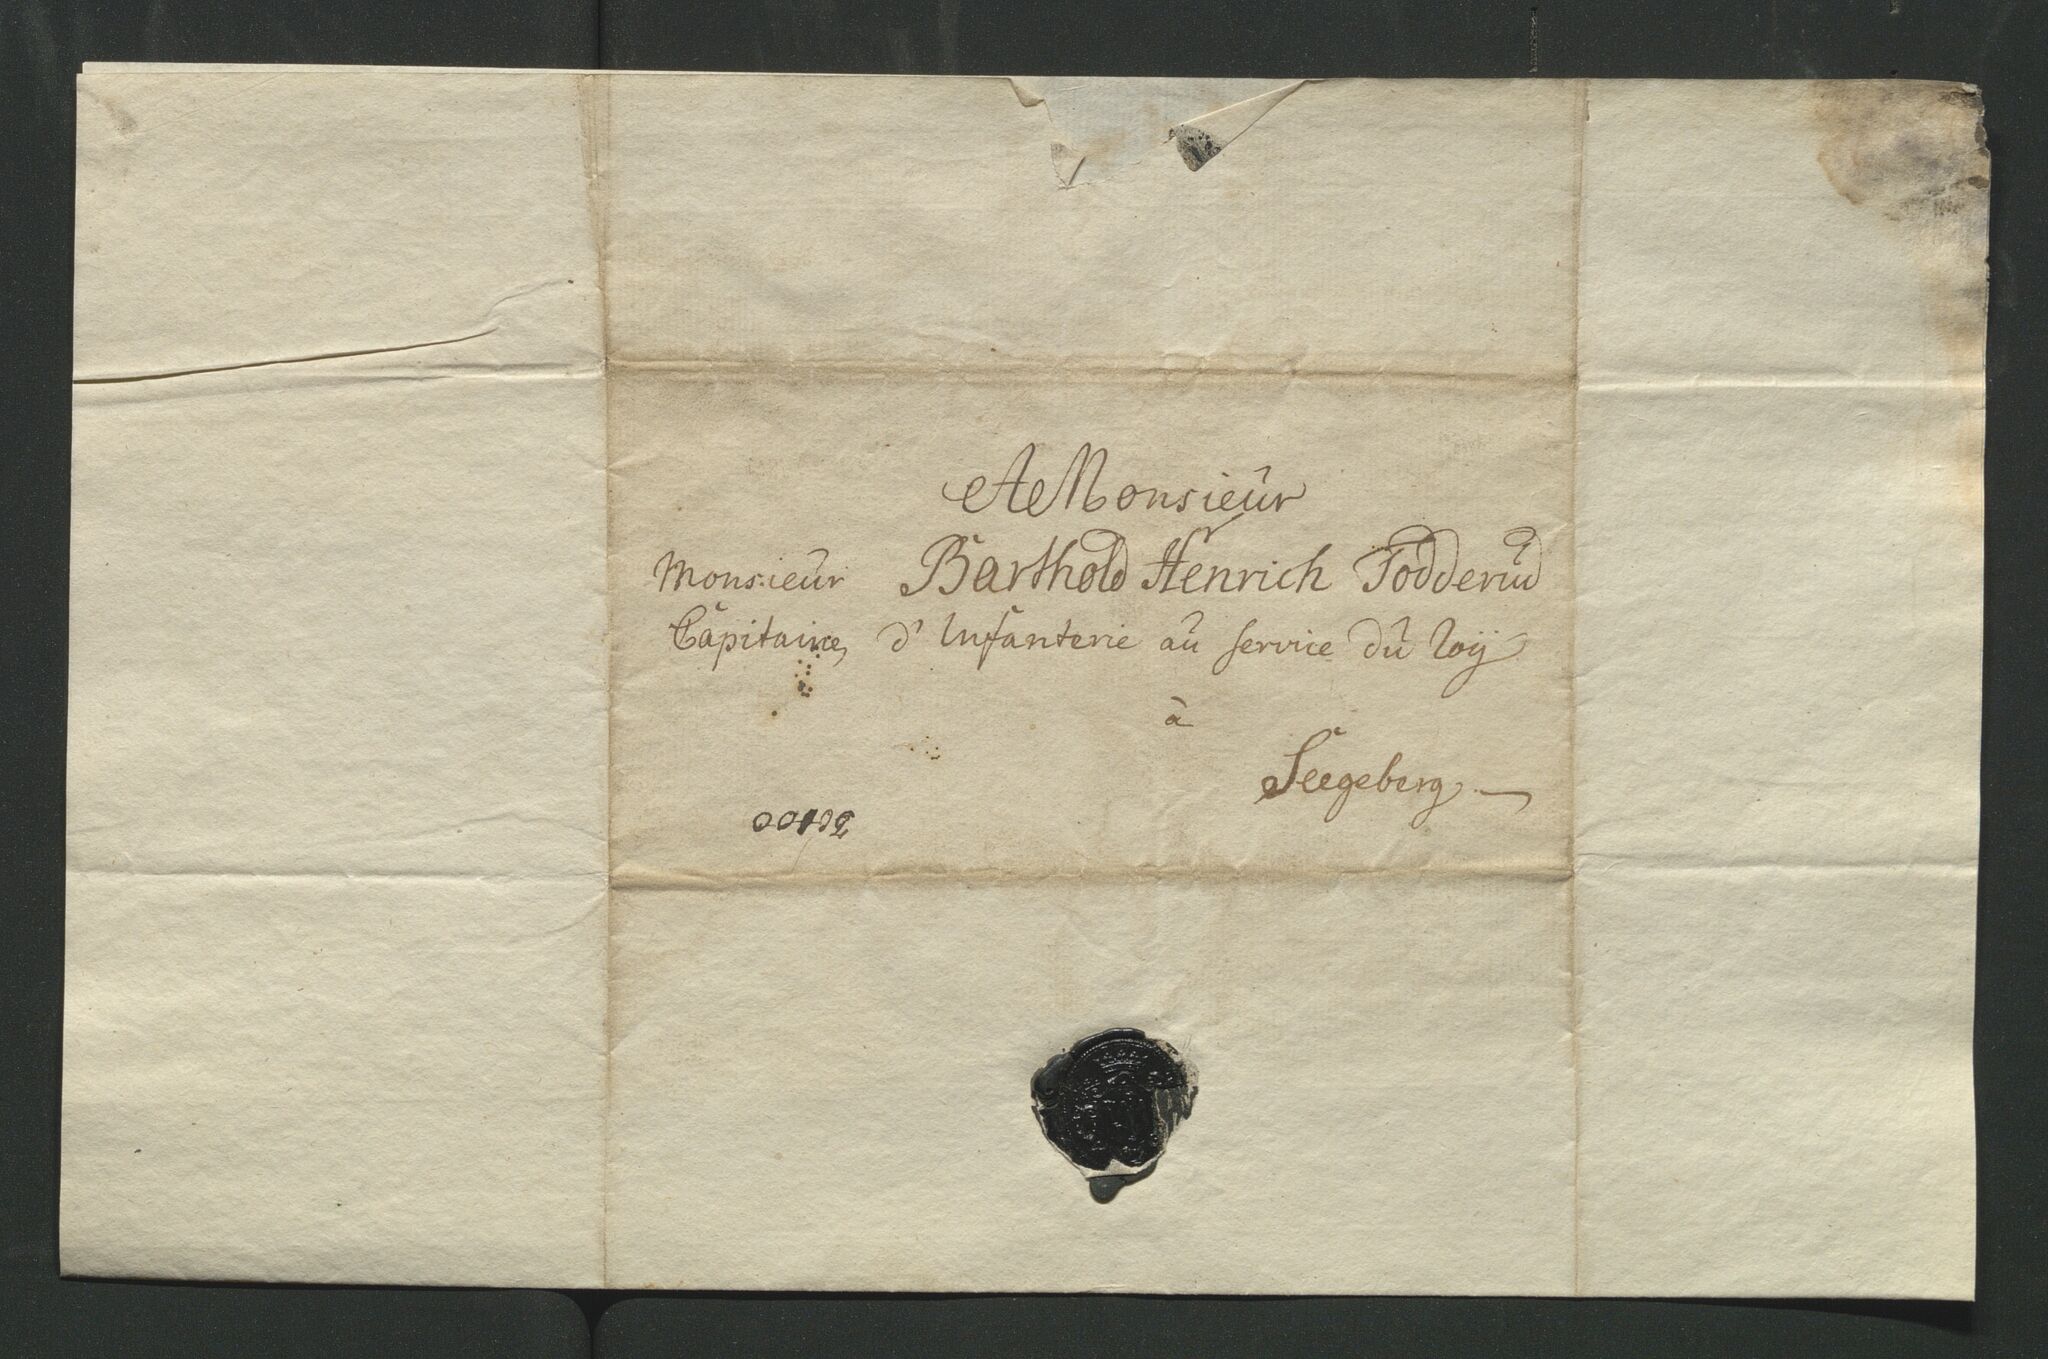 A Monsieur
Monsieur Barthold Henrich Todderud
Capitaine, d'Infanterie au service du roÿ
à
Seegeberg.